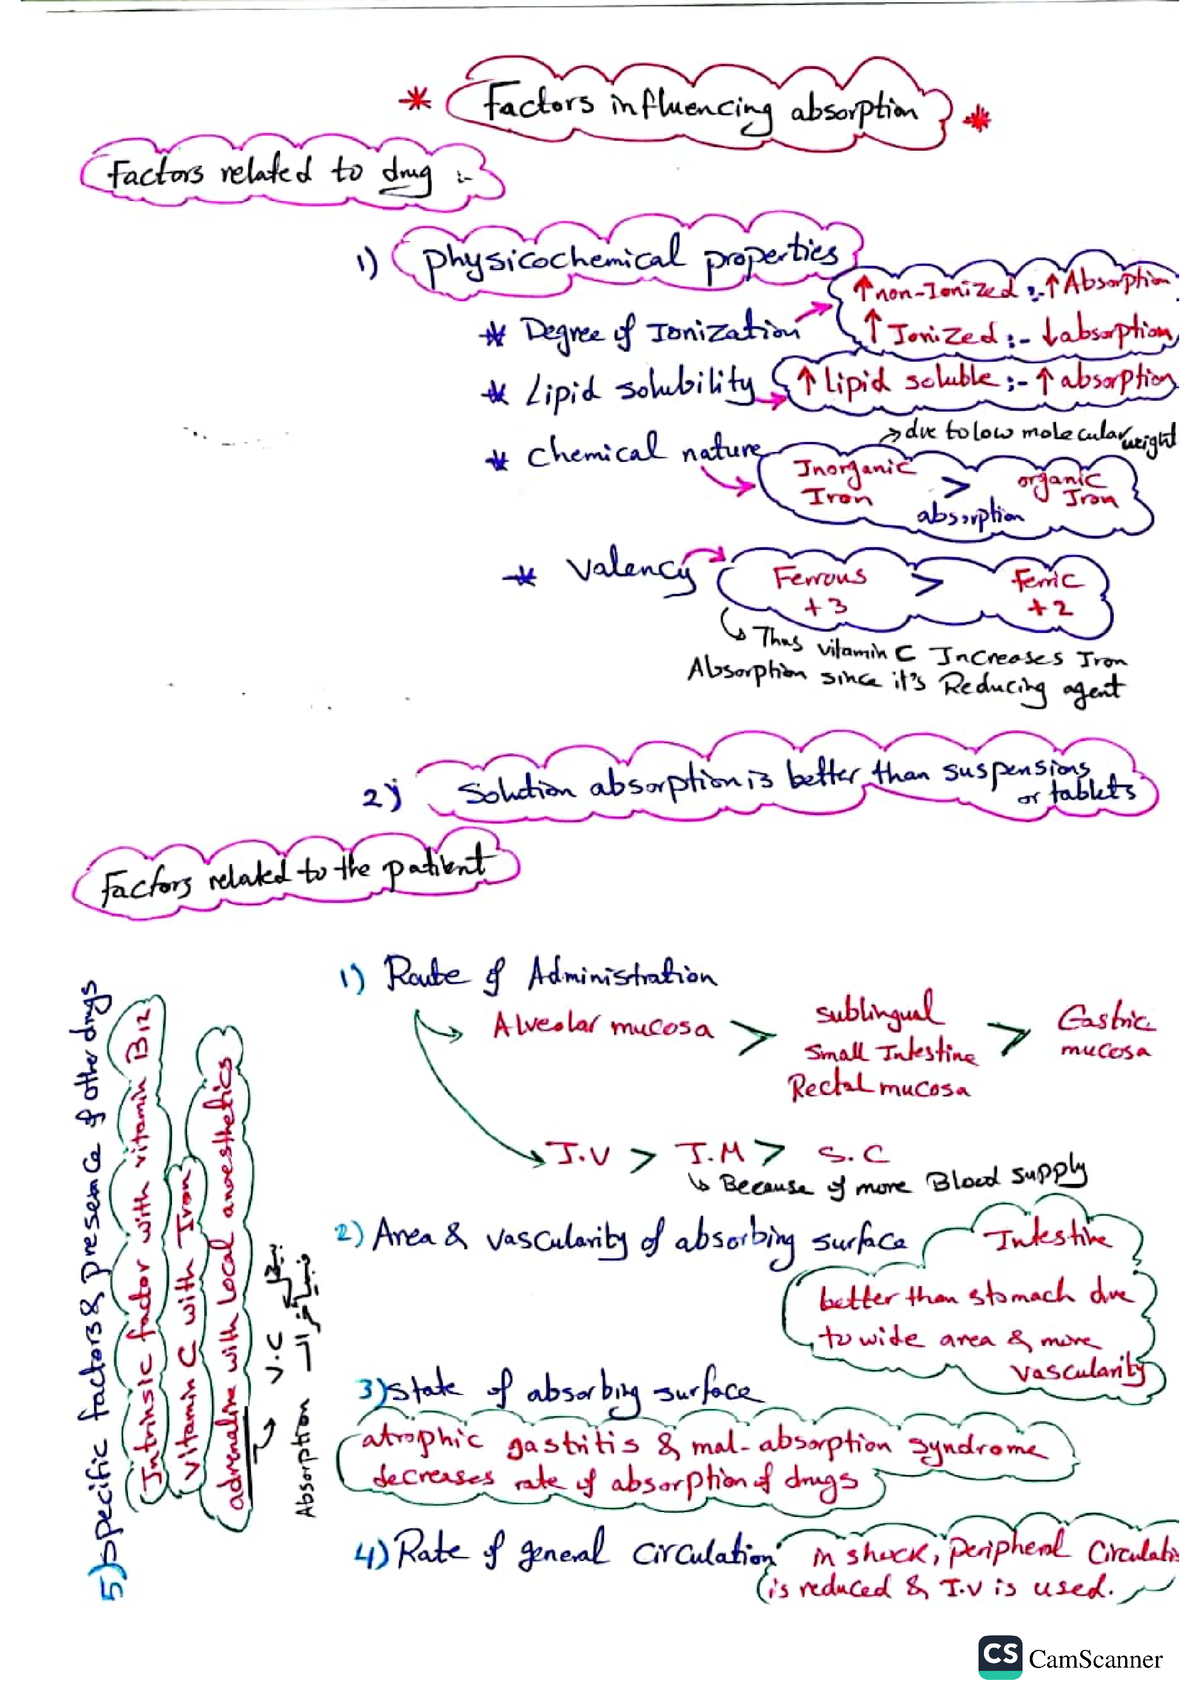 * Factors influencing absorption *
Factors related to drug :-
1) physicochemical properties
* Degree of Ionization
↑ non-Ionized :- ↑ Absorption
↑ Ionized :- ↓ absorption
* Lipid solubility ↑ lipid soluble :- ↑ absorption
→ due to low molecular weight
* Chemical nature
Inorganic Iron > organic Iron
absorption
* Valency Ferrous > Ferric
+3 +2
↳ Thus vitamin C Increases Iron
Absorption since it's Reducing agent
2) Solution absorption is better than suspensions
or tablets
Factors related to the patient
1) Route of Administration
Alveolar mucosa > sublingual > Gastric
Small Intestine mucosa
Rectal mucosa
I.V > I.M > S.C
↳ Because of more Blood supply
2) Area & vascularity of absorbing surface Intestine
better than stomach due
to wide area & more
vascularity
3) State of absorbing surface
atrophic gastritis & mal-absorption syndrome
decreases rate of absorption of drugs
4) Rate of general circulation in shock, peripheral Circulati
is reduced & I.V is used.
5) Specific factors & presence of other drugs
Intrinsic factor with vitamin B12
Vitamin C with Iron
adrenaline with local anaesthetics
→ V.C
Absorption
CS CamScanner